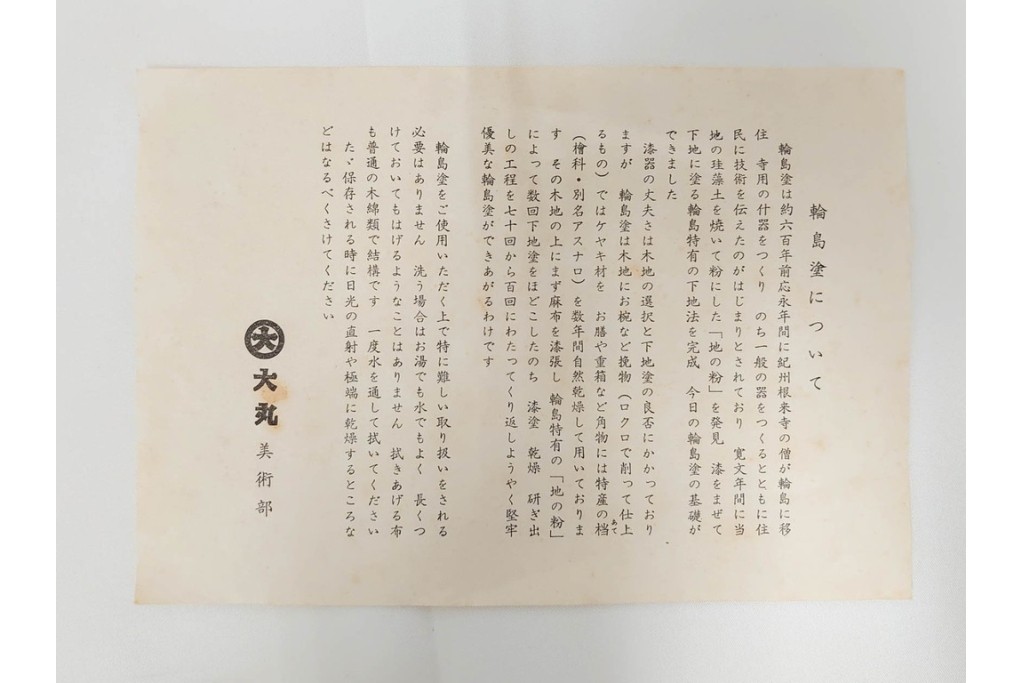 輪島塗について
輪島塗は約六百年前応永年間に紀州根来寺の僧が輪島に移
住　寺用の什器をつくり　のち一般の器をつくるとともに住
民に技術を伝えたのがはじまりとされており　寛文年間に当
地の珪藻土を焼いて粉にした「地の粉」を発見　漆をまぜて
下地に塗る輪島特有の下地法を完成　今日の輪島塗の基礎が
できました
漆器の丈夫さは木地の選択と下地塗の良否にかかっており
ますが　輪島塗は木地にお椀など挽物（ロクロで削って仕上
るもの）ではケヤキ材を　お膳や重箱など角物には特産の档あて
（檜科・別名アスナロ）を数年間自然乾燥して用いておりま
す　その木地の上にまず麻布を漆張し　輪島特有の「地の粉」
によって数回下地塗をほどこしたのち　漆塗　乾燥　研ぎ出
しの工程を七十回から百回にわたってくり返しようやく堅牢
優美な輪島塗ができあがるわけです
輪島塗をご使用いただく上で特に難しい取り扱いをされる
必要はありません　洗う場合はお湯でも水でもよく　長くつ
けておいてもはげるようなことはありません　拭きあげる布
も普通の木綿類で結構です　一度水を通して拭いてください
たゞ保存される時に日光の直射や極端に乾燥するところな
どはなるべくさけてください
大 大丸 美術部